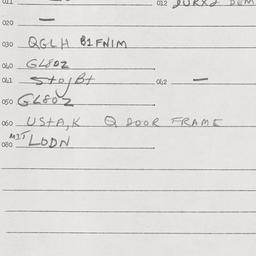 011 012 DURX2 DEM
020 —
030 QGLH B1FNIM
040 GL80Z
041 StojBt 042 —
050 GL80Z
060 UStA,K Q DOOR FRAME
MIT
080 LODN